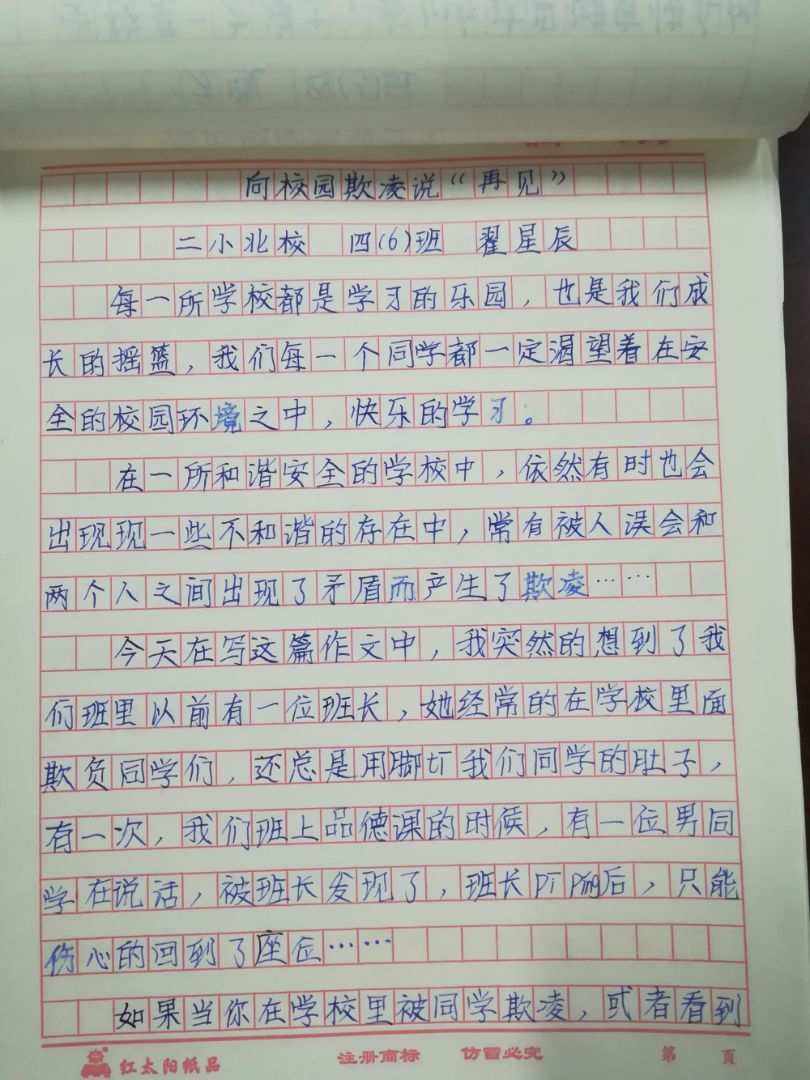 向校园欺凌说“再见”
二小北校 四(6)班 翟星辰
每一所学校都是学习的乐园，也是我们成
长的摇篮，我们每一个同学都一定渴望着在安
全的校园环境之中，快乐的学习。
在一所和谐安全的学校中，依然有时也会
出现现一些不和谐的存在中，常有被人误会和
两个人之间出现了矛盾而产生了欺凌……
今天在写这篇作文中，我突然的想到了我
们班里以前有一位班长，她经常的在学校里面
欺负同学们，还总是用脚tì我们同学的肚子，
有一次，我们班上品德课的时候，有一位男同
学在说话，被班长发现了，班长后，只能
伤心的回到了座位……
如果当你在学校里被同学欺凌，或者看到
红太阳纸品 注册商标 仿冒必究 第 頁